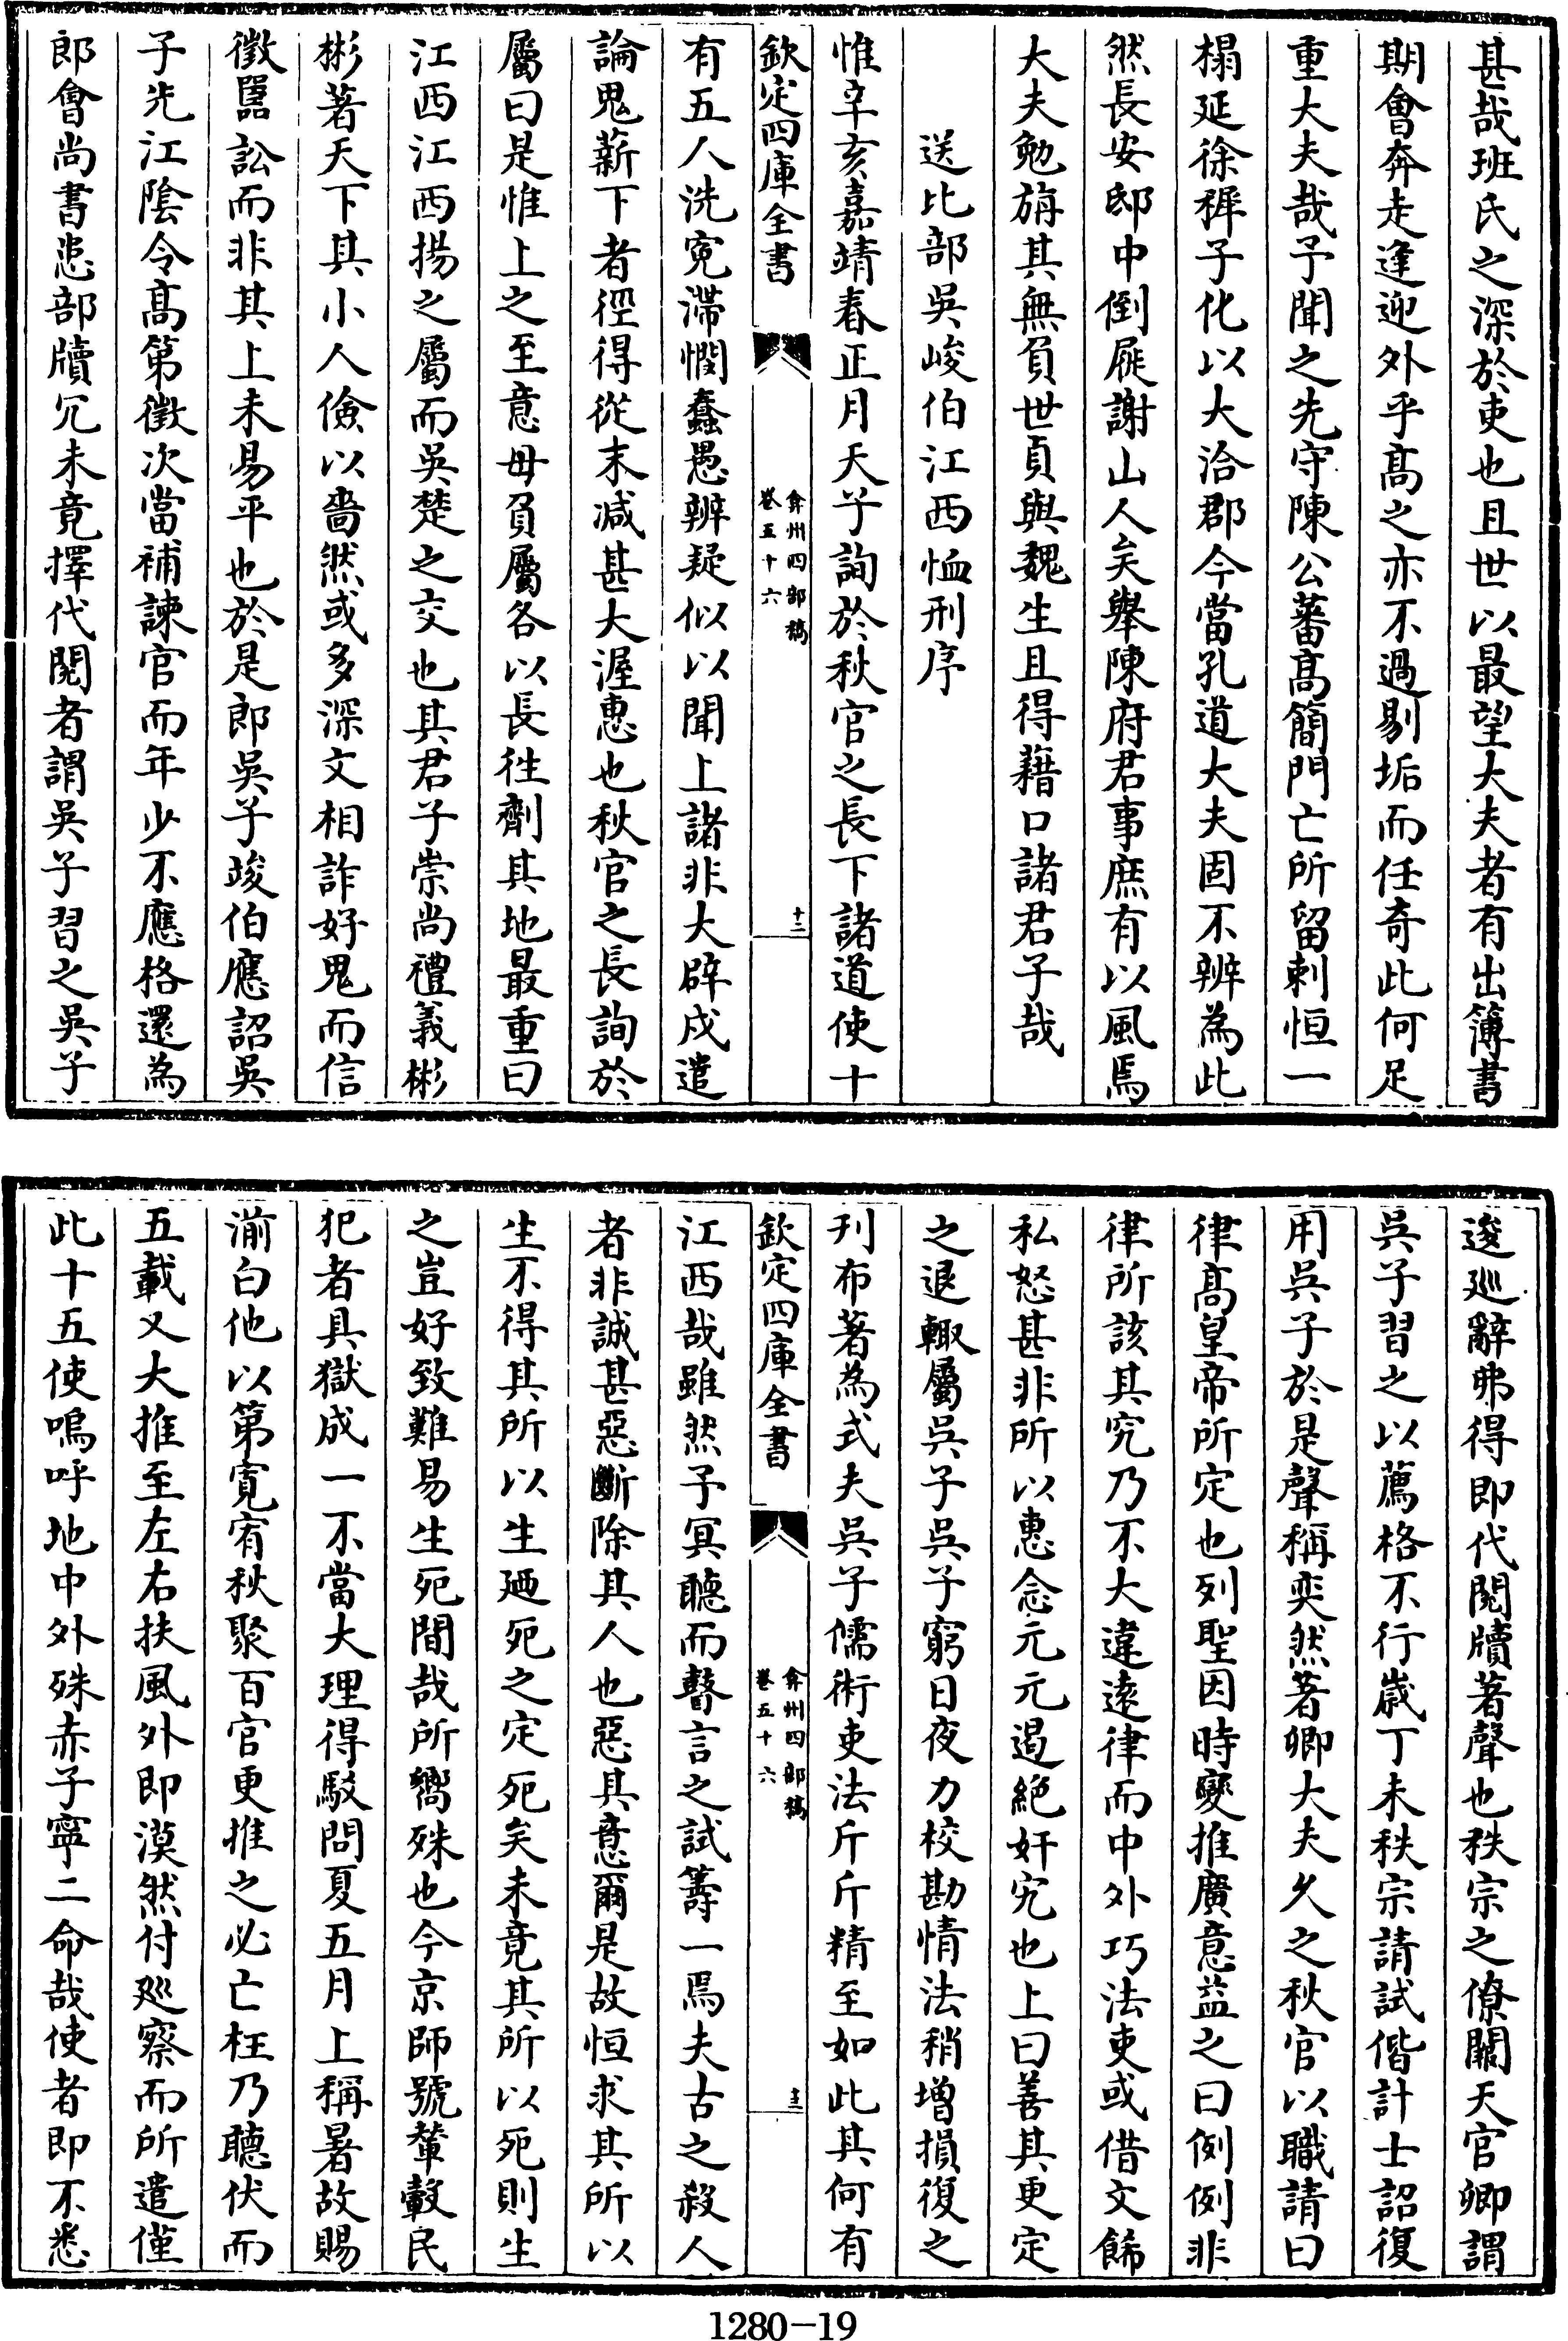 甚哉班氏之深於吏也且世以最望大夫者有出簿書
期會奔走逢迎外乎髙之亦不過剔垢而任奇此何足
重大夫哉予聞之先守陳公蕃髙簡門亡所留刺恒一
榻延徐穉子化以大洽郡今當孔道大夫固不辨為此
然長安邸中倒屣謝山人矣舉陳府君事庶有以風焉
大夫勉旃其無負世貞與魏生且得藉口諸君子哉
送比部吳峻伯江西恤刑序
惟辛亥嘉靖春正月天子詢於秋官之長下諸道使十
欽定四庫全書
弇州四部稿
卷五十六
十二
有五人洗寃滯憫蠢愚辨疑似以聞上諸非大辟戍遣
論鬼薪下者徑得從末減甚大渥惠也秋官之長詢於
屬曰是惟上之至意毋負屬各以長徃劑其地最重曰
江西江西揚之屬而吳楚之交也其君子崇尚禮義彬
彬著天下其小人儉以嗇然或多深文相詐好鬼而信
徵嚚訟而非其上未易平也於是郎吳子峻伯應詔吳
子先江陰令髙第徵次當補諫官而年少不應格還為
郎會尚書恚部牘冗未竟擇代閱者謂吳子習之吳子
逡廵辭弗得即代閱牘著聲也秩宗之僚闕天官卿謂
吳子習之以薦格不行嵗丁未秩宗請試偕計士詔復
用吳子於是聲稱奕然著卿大夫乆之秋官以職請曰
律髙皇帝所定也列聖因時變推廣意益之曰例例非
律所該其究乃不大違遠律而中外巧法吏或借文餙
私怒甚非所以惠念元元遏絶奸宄也上曰善其更定
之退輙屬吳子吳子窮日夜力校勘情法稍增損復之
刋布著為式夫吳子儒術吏法斤斤精至如此其何有
欽定四庫全書
弇州四部稿
卷五十六
十三
江西哉雖然予冥聽而瞽言之試籌一焉夫古之殺人
者非誠甚惡斷除其人也惡其意爾是故恒求其所以
生不得其所以生廼死之定死矣未竟其所以死則生
之豈好致難易生死間哉所嚮殊也今京師號輦轂民
犯者具獄成一不當大理得駁問夏五月上稱暑故賜
湔白他以第寛宥秋聚百官更推之必亡枉乃聽伏而
五載又大推至左右扶風外即漠然付廵察而所遣僅
此十五使嗚呼地中外殊赤子寧二命哉使者即不悉
1280-19